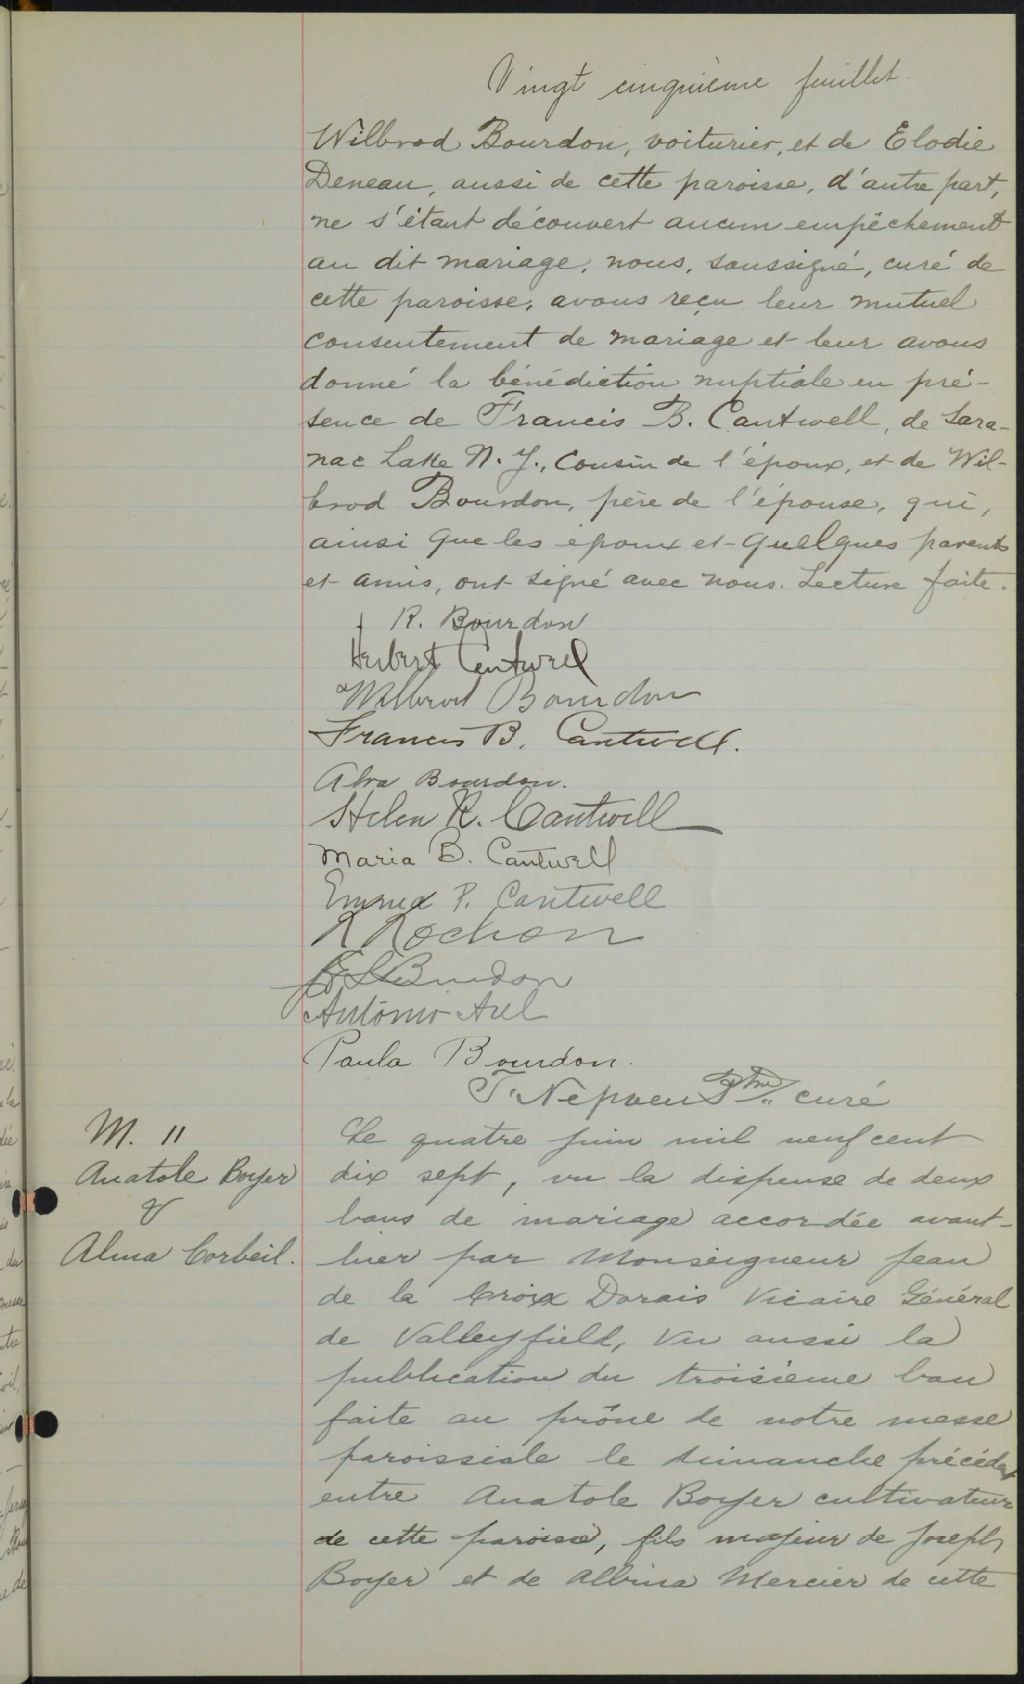 Vingt cinquième feuillet.
Wilbrod Bourdon, voiturier, et de Elodie
Deneau, aussi de cette paroisse, d'autre part,
ne s'étant découvert aucun empêchement
au dit mariage, nous, soussigné, curé de
cette paroisse, avons reçu leur mutuel
consentement de mariage et leur avons
donné la bénédiction nuptiale en pré-
sence de Francis B. Cantwell, de Sara-
nac Lake N. Y., cousin de l'époux, et de Wil-
brod Bourdon, père de l'épouse, qui,
ainsi que les époux et quelques parents
et amis, ont signé avec nous. Lecture faite.
R. Bourdon
Herbert Cantwell
Wilbrod Bourdon
Francis B. Cantwell.
Alva Bourdon.
Helen R. Cantwell
Maria B. Cantwell
Emma P. Cantwell
R Rochon
Bourdon
Antonio
Paula Bourdon.
T. Nepveu Ptre curé
M. 11
Anatole Boyer
&
Alma Corbeil.
Le quatre juin mil neuf cent
dix sept, vu la dispense de deux
bans de mariage accordée avant-
hier par Monseigneur Jean
de la Croix Dorais Vicaire Général
de Valleyfield, vu aussi la
publication du troisième ban
faite au prône de notre messe
paroissiale le dimanche précédent
entre Anatole Boyer cultivateur
de cette paroisse, fils majeur de Joseph
Boyer et de Albina Mercier de cette